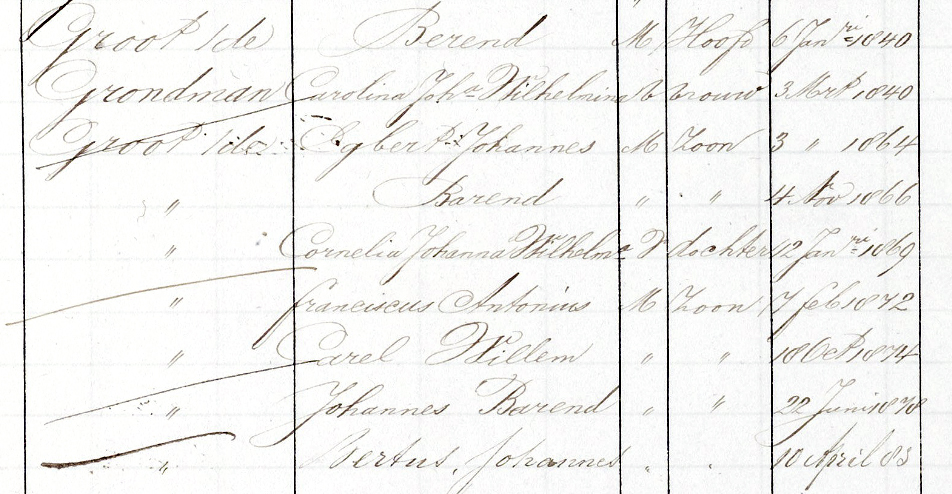 Groot /de Berend M Hoofd 6 Janri 1840
Grondman Carolina Joha Wilhelmina V vrouw 3 Mrt 1840
Groot /de Egbert Johannes M Zoon 3 " 1864
" Barend " " 4 Nov 1866
" Cornelia Johanna Wilhelma V dochter 12 Janri 1869
" Franciscus Antonius M Zoon 7 feb 1872
" Carel Willem " " 18 Oct 1874
" Johannes Barend " " 22 Juni 1878
" Bertus, Johannes " " 10 April 83